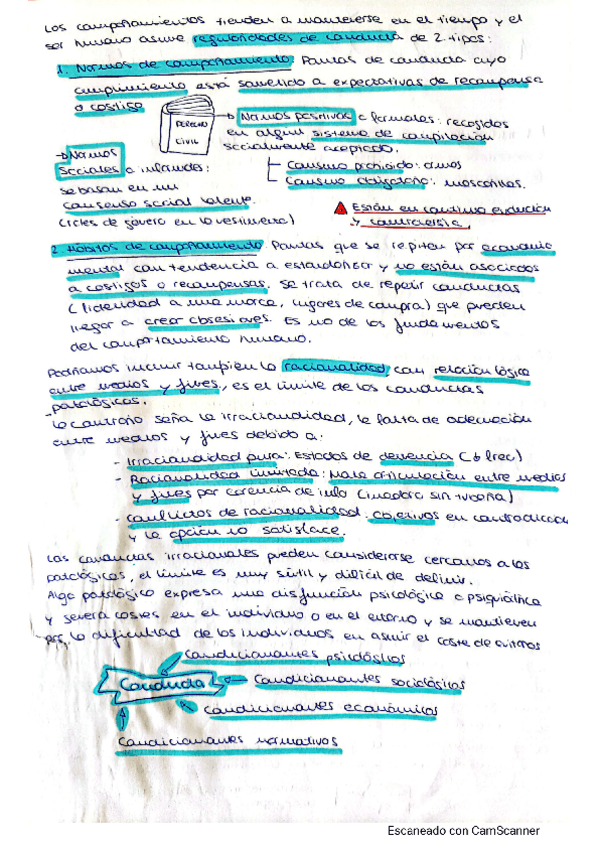 Los comportamientos tienden a mantenerse en el tiempo y el
ser humano asume regularidades de conducta de 2 tipos:
1. Normas de comportamiento: Pautas de conducta cuyo
cumplimiento está sometido a expectativas de recompensa
o castigo
DERECHO
CIVIL
→ Normas positivas o formales: recogidos
en algún sistema de compilación
socialmente aceptado.
Consumo prohibido: armas
Consumo obligatorio: mascarillas.
→ Normas
sociales o informales:
se basan en un
consenso social latente.
(roles de género en la vestimenta)
Están en continua evolución
y controversia
2. Hábitos de comportamiento: Pautas que se repiten por economía
mental con tendencia a estandarizar y no están asociados
a castigos o recompensas. Se trata de repetir conductas
(fidelidad a una marca, lugares de compra) que pueden
llegar a crear obsesiones. Es uno de los fundamentos
del comportamiento humano.
Podríamos incluir también la racionalidad, con relación lógica
entre medios y fines, es el límite de las conductas
patológicas.
Lo contrario sería la irracionalidad, la falta de adecuación
entre medios y fines debido a:
- Irracionalidad pura: Estados de demencia (↓ frec)
- Racionalidad limitada: Mala articulación entre medios
y fines por carencia de info (inodoro sin tubería)
- Conflictos de racionalidad: Objetivos en contradicción
y la opción no satisface.
Las conductas irracionales pueden considerarse cercanas a las
patológicas, el límite es muy sútil y difícil de definir.
Algo patológico expresa una disfunción psicológica o psiquiátrica
y genera costes en el individuo o en el entorno y se mantienen
por la dificultad de los individuos en asumir el coste de evitarlos
Condicionantes psicológicos
Conducta
Condicionantes sociológicos
Condicionantes económicos
Condicionantes normativos
Escaneado con CamScanner